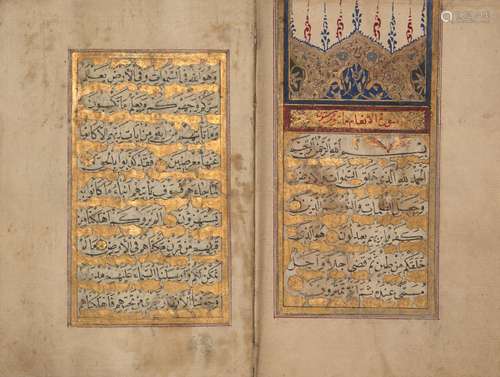 سورة الانعام
بسم الله الرحمن الرحيم
الحمد لله الذي خلق السموات والارض
وجعل الظلمات والنور ثم الذين
كفروا بربهم يعدلون هو الذي
خلقكم من طين ثم قضى اجلا واجل
مسمى عنده ثم انتم تمترون
وهو الله في السموات وفي الارض يعلم
سركم وجهركم ويعلم ما تكسبون
وما تاتيهم من اية من ايات ربهم الا كانوا
عنها معرضين فقد كذبوا بالحق
لما جاءهم فسوف ياتيهم انباء ما كانوا به
يستهزؤن الم يروا كم اهلكنا من
قبلهم من قرن مكناهم في الارض ما لم
نمكن لكم وارسلنا السماء عليهم مدرارا
وجعلنا الانهار تجري من تحتهم فاهلكناهم